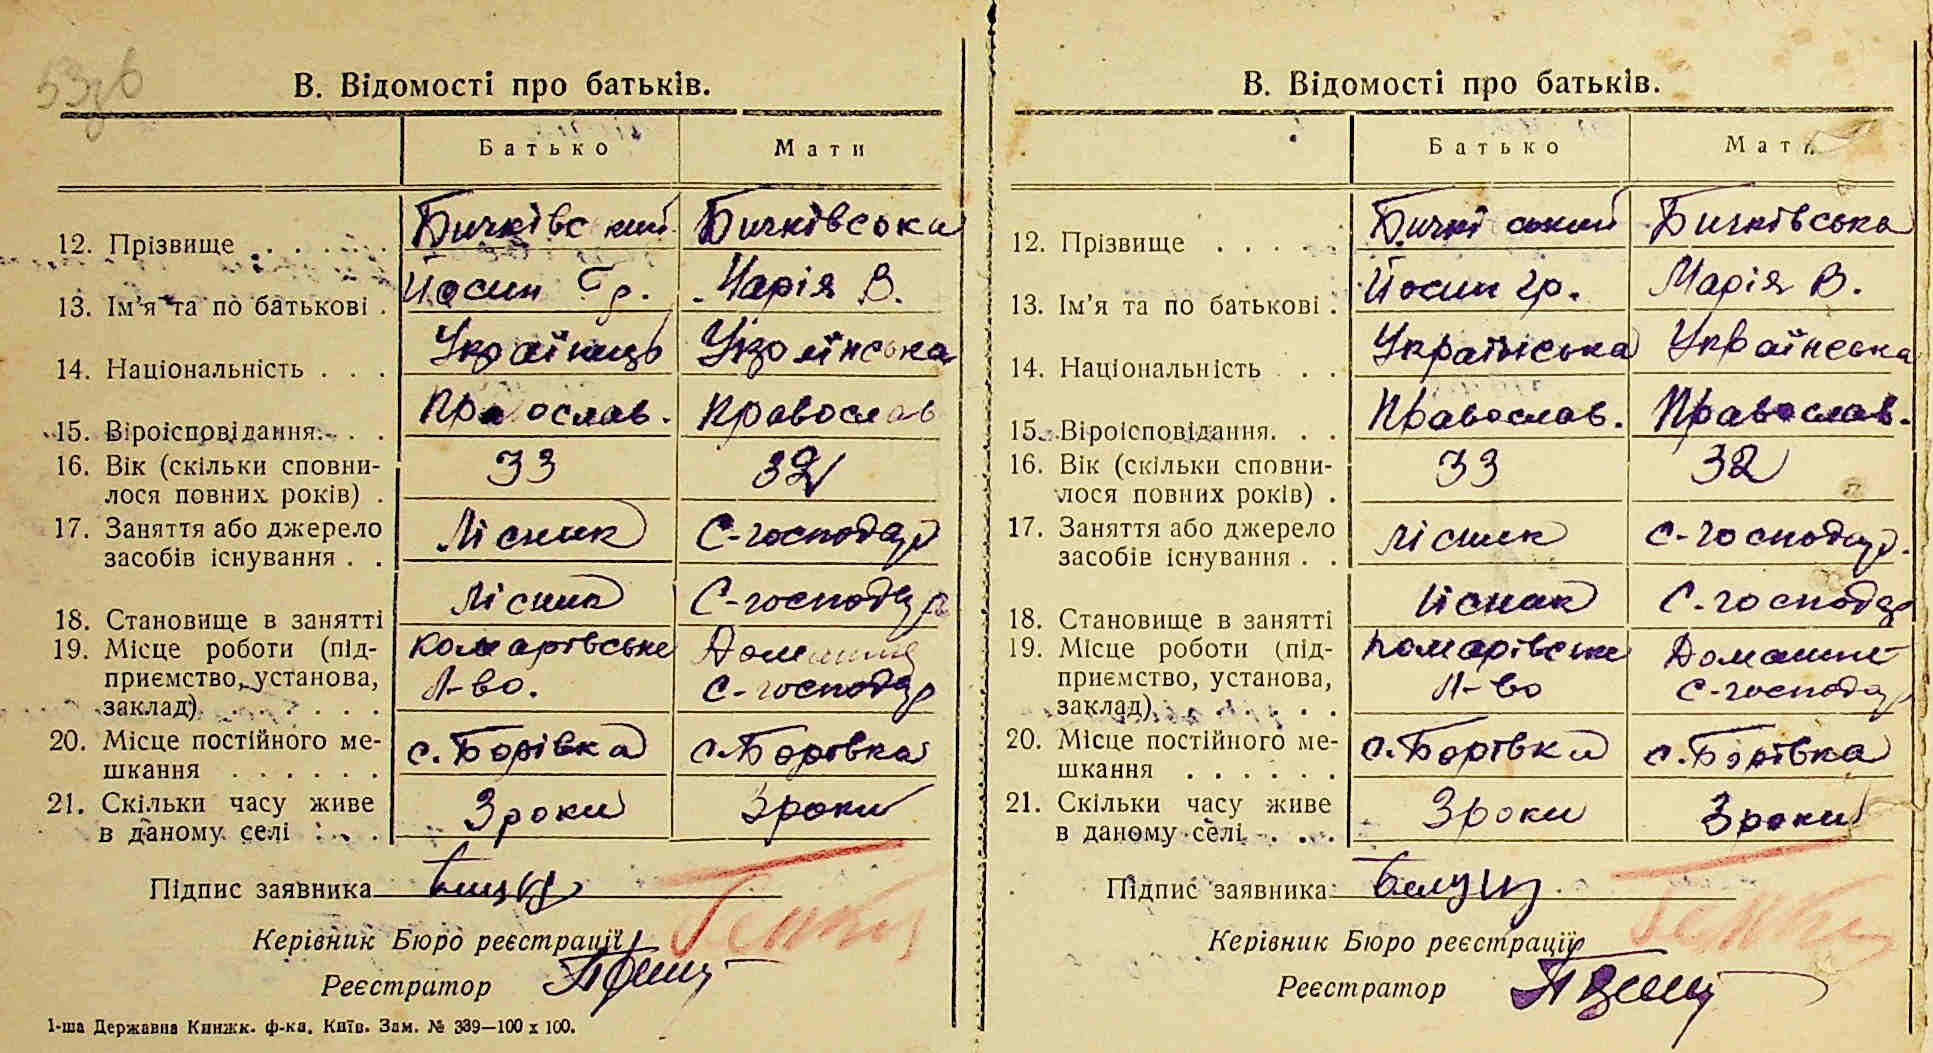 В. Відомості про батьків.
Батько Мати
12. Прізвище . . . . . Бичківський Бичківська
13. Ім'я та по батькові . Йосип Гр. Марія В.
14. Національність . . . Українець Українська
15. Віроісповідання. . . Православ. Православ
16. Вік (скільки сповни-
лося повних років) . 33 32
17. Заняття або джерело
засобів існування . . Лісник С-господар
18. Становище в занятті Лісник С-господар
19. Місце роботи (під- Комарівське Домашнє
приємство, установа, Л-во. С-господар
заклад) . . . . . .
20. Місце постійного ме-
шкання . . . . . . с. Борівка с. Борівка
21. Скільки часу живе
в даному селі . . . 3 роки 3 роки
Підпис заявника
Керівник Бюро реєстрації
Реєстратор
1-ша Державна Книжк. ф-ка. Київ. Зам. № 339—100 х 100.
В. Відомості про батьків.
Батько Мати
12. Прізвище . . . . Бичкі ський Бичківська
13. Ім'я та по батькові . Йосип гр. Марія В.
14. Національність . . Українська Українська
15. Віроісповідання. . . Православ. Православ.
16. Вік (скільки сповни-
лося повних років) . 33 32
17. Заняття або джерело
засобів існування . . Лісник С-господар.
18. Становище в занятті Лісник С-господар
19. Місце роботи (під- Комарівське Домашнє
приємство, установа, Л-во С-господар
заклад) . . . . . .
20. Місце постійного ме-
шкання . . . . . . с. Борівка с. Борівка
21. Скільки часу живе
в даному селі . . . 3 роки 3 роки
Підпис заявника
Керівник Бюро реєстрації
Реєстратор